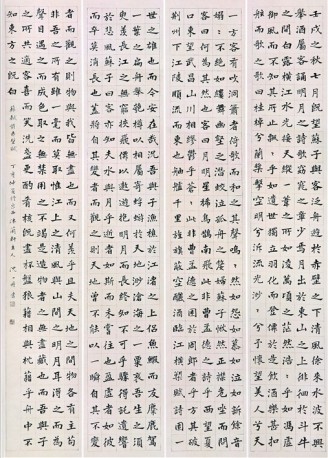 壬戌之秋七月既望蘇子與客泛舟遊於赤壁之下清風徐來水波不興
舉酒屬客誦明月之詩歌窈窕之章少焉月出於東山之上徘徊於斗牛
之間白露橫江水光接天縱一葦之所如凌萬頃之茫然浩浩乎如馮虛
御風而不知其所止飄飄乎如遺世獨立羽化而登仙於是飲酒樂甚扣
舷而歌之歌曰桂棹兮蘭槳擊空明兮泝流光渺渺兮予懷望美人兮天
一方客有吹洞簫者倚歌而和之其聲嗚嗚然如怨如慕如泣如訴餘音
嫋嫋不絕如縷舞幽壑之潛蛟泣孤舟之嫠婦蘇子愀然正襟危坐而問
客曰何為其然也客曰月明星稀烏鵲南飛此非曹孟德之詩乎西望夏
口東望武昌山川相繆鬱乎蒼蒼此非孟德之困於周郎者乎方其破
荊州下江陵順流而東也舳艫千里旌旗蔽空釃酒臨江橫槊賦詩固一
世之雄也而今安在哉況吾與子漁樵於江渚之上侶魚蝦而友麋鹿駕
一葉之扁舟舉匏樽以相屬寄蜉蝣於天地渺滄海之一粟哀吾生之須
臾羨長江之無窮挾飛仙以遨遊抱明月而長終知不可乎驟得託遺響
於悲風蘇子曰客亦知夫水與月乎逝者如斯而未嘗往也盈虛者如彼
而卒莫消長也蓋將自其變者而觀之則天地曾不能以一瞬自其不變
者而觀之則物與我皆無盡也而又何羨乎且夫天地之間物各有主苟
非吾之所有雖一毫而莫取惟江上之清風與山間之明月耳得之而為
聲目遇之而成色取之無禁用之不竭是造物者之無盡藏也而吾與子
之所共適客喜而笑洗盞更酌肴核既盡杯盤狼藉相與枕藉乎舟中不
知東方之既白
蘇軾前赤壁賦